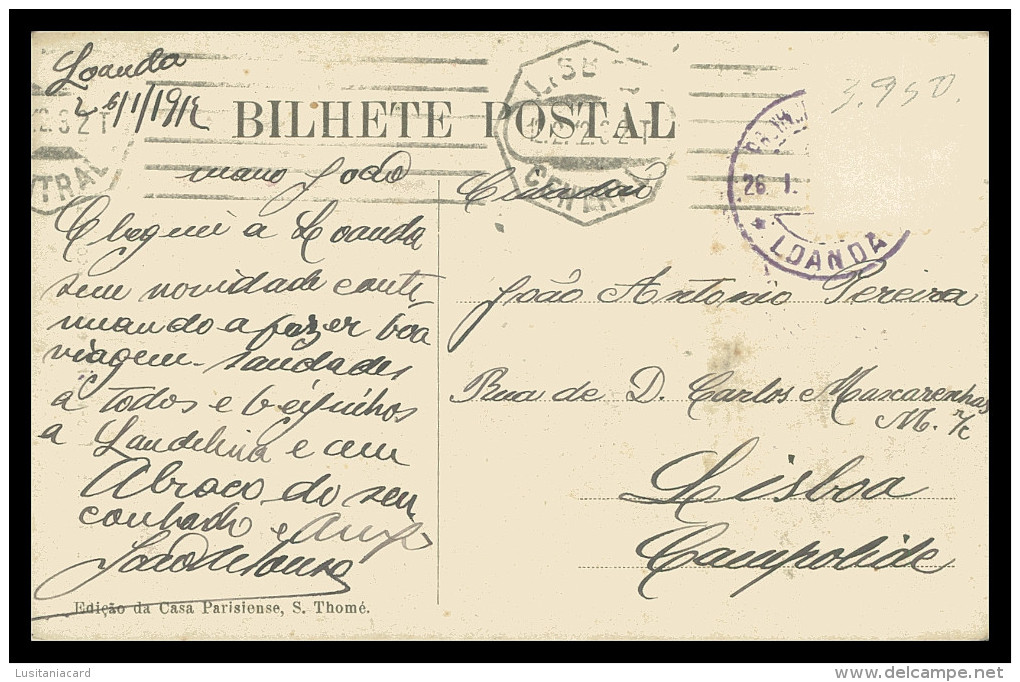 Loanda
26/1/1912
BILHETE POSTAL
mano João
Cheguei a Loanda
sem novidade conti
nuando a fazer boa
viagem saudades
a todos e beijinhos
a Laudelina e um
Abraço do seu
cunhado e Amº
João de Sousa
Edição da Casa Parisiense, S. Thomé.
João Antonio Pereira
Rua de D. Carlos Mascarenhas
M. r/c
Lisboa
Campolide
LISB
CENTRAL
NTRAL
26.1.
* LOANDA
3.950.
Lusitaniacard
www.delcampe.net